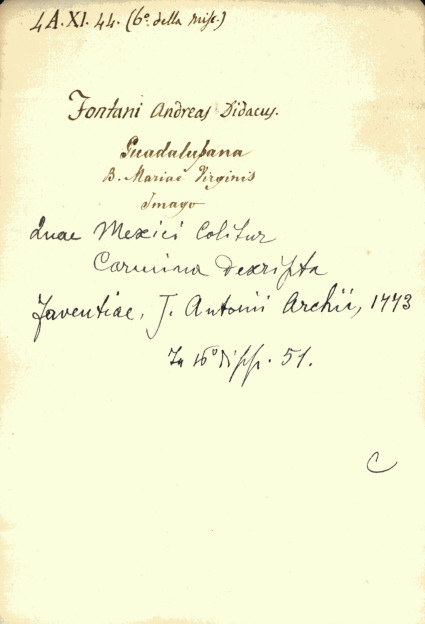 4 A. XI. 44. (6º. della misc.)
Fontani Andreas Didacus.
Guadalupana
B. Mariae Virginis
Imago
Quae Mexici Colitur
Carmina descripta
Faventiae, J. Antonii Archii, 1773
In 16º di pp. 51.
C